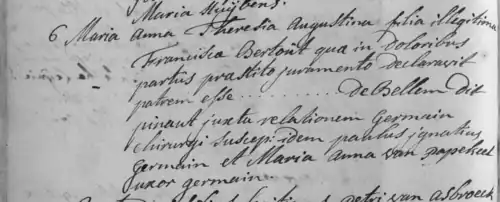 Maria Huybens.
6 Maria Anna Theresia Augustina filia illegitima
Francisca Bertout qua in doloribus
partus præstito juramento declaravit
patrem esse .......... De Bellem dit
pinaut juxta relationem Germain
chirurgi suscep: idem paulus jgnatius
germain et Maria Anna van papekeel
uxor germain.
petri van asbroeck